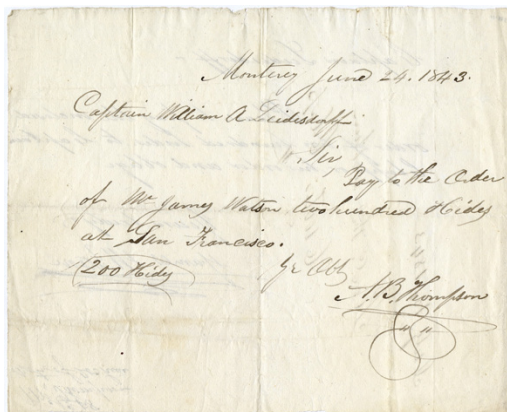 Monterey June 24. 1843.
Captain William A Leidesdorff
Sir,
Pay to the Order
of Mr James Watson two hundred Hides
at San Francisco.
200 Hides
A. B. Thompson